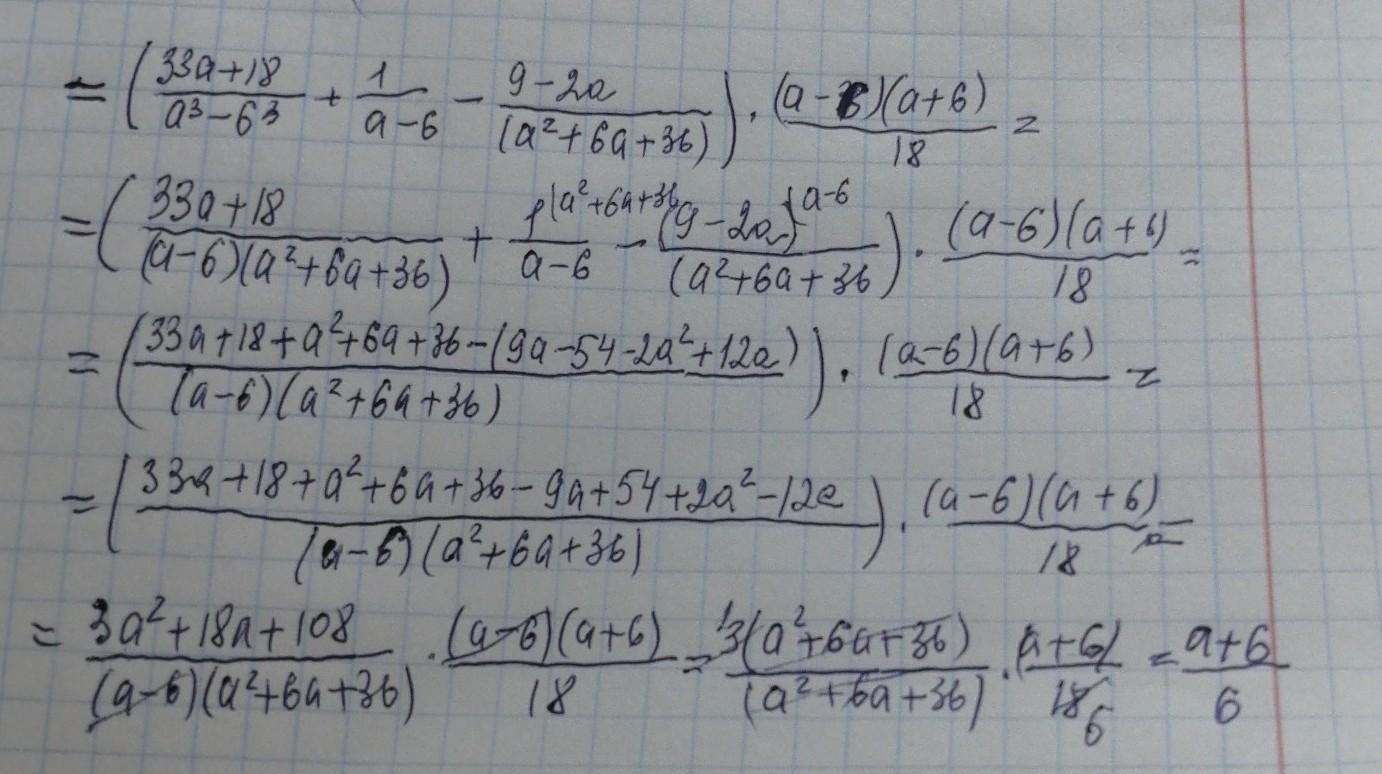 = ( (33a+18)/(a³-6³) + 1/(a-6) - (9-2a)/(a²+6a+36) ) · (a-6)(a+6)/18 =
= ( (33a+18)/((a-6)(a²+6a+36)) + 1^(a²+6a+36/(a-6) - (9-2a)^(a-6/(a²+6a+36) ) · (a-6)(a+6)/18 =
= ( (33a+18+a²+6a+36-(9a-54-2a²+12a))/((a-6)(a²+6a+36)) ) · (a-6)(a+6)/18 =
= ( (33a+18+a²+6a+36-9a+54+2a²-12a)/((a-6)(a²+6a+36)) ) · (a-6)(a+6)/18 =
= (3a²+18a+108)/((a-6)(a²+6a+36)) · (a-6)(a+6)/18 = ¹3(a²+6a+36)/(a²+6a+36) · (a+6)/18₆ = (a+6)/6